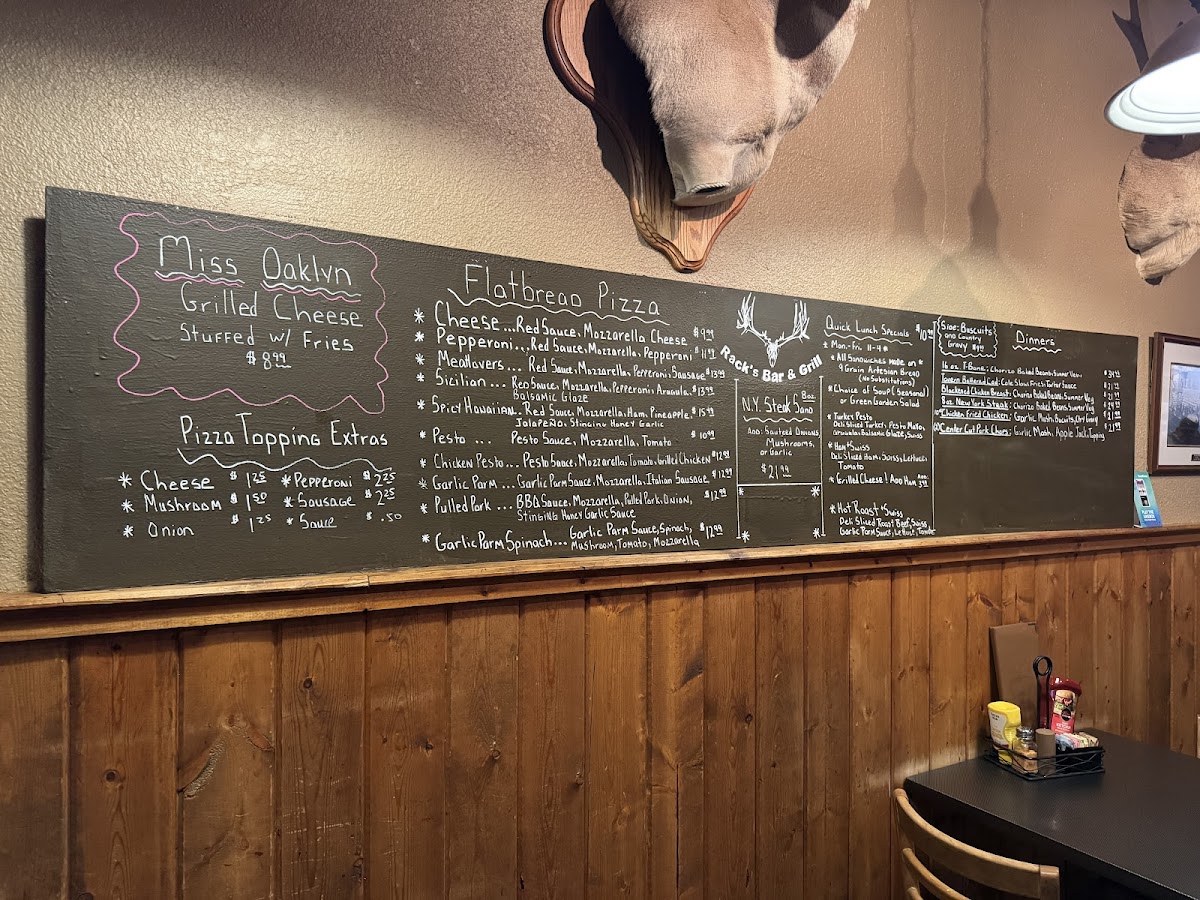 Miss Oaklyn
Grilled Cheese
Stuffed w/ Fries
$8.99
Pizza Topping Extras
* Cheese $1.25
* Mushroom $1.50
* Onion $1.25
* Pepperoni $2.25
* Sausage $2.25
* Sauce $.50
Flatbread Pizza
* Cheese... Red Sauce, Mozzarella Cheese $9.99
* Pepperoni... Red Sauce, Mozzarella, Pepperoni $11.99
* Meatlovers.. Red Sauce, Mozzarella, Pepperoni, Sausage $13.99
* Sicilian ... Red Sauce, Mozzarella, Pepperoni, Arugula, $13.99
Balsamic Glaze
* Spicy Hawaiian.. Red Sauce, Mozzarella, Ham, Pineapple, $15.99
Jalapeño, Stinging Honey Garlic
* Pesto ... Pesto Sauce, Mozzarella, Tomato $10.99
* Chicken Pesto... Pesto Sauce, Mozzarella, Tomato, Grilled Chicken $12.99
* Garlic Parm... Garlic Parm Sauce, Mozzarella, Italian Sausage $12.99
* Pulled Pork ... BBQ Sauce, Mozzarella, Pulled Pork, Onion, $12.99
Stinging Honey Garlic Sauce
* Garlic Parm Spinach... Garlic Parm Sauce, Spinach, $12.99
Mushroom, Tomato, Mozzarella
Rack's Bar & Grill
8oz.
N.Y. Steak Sand
Add: Sauteed Onions,
Mushrooms,
or Garlic
$21.99
Quick Lunch Specials $10.99
* Mon.-Fri. 11-4 *
* All Sandwiches made on *
9 Grain Artesian Bread
(No Substitutions)
* Choice of Soup (Seasonal)
or Green Garden Salad
* Turkey Pesto
Deli Sliced Turkey, Pesto Mayo,
Arugula, Balsamic Glaze, Swiss
* Ham & Swiss
Deli Sliced Ham, Swiss, Lettuce,
Tomato
* Grilled Cheese! Add Ham Add 3.99
* Hot Roast & Swiss
Deli Sliced Roast Beef, Swiss,
Garlic Parm Sauce, Lettuce, Tomato
Side: Bascuits
and Country
Gravy
Dinners
16 oz. T-Bone: Chorizo Baked Beans, Summer Veg $34.99
Tavern Battered Cod: Cole Slaw, Fries, Tartar Sauce
Blackened Chicken Breast: Chorizo Baked Beans, Summer Veg
8oz New York Steak: Chorizo Baked Beans, Summer Veg
Chicken Fried Chicken: Garlic Mash, Biscuits, Ctry Gravy
Center Cut Pork Chops: Garlic Mash, Apple Jack Topping